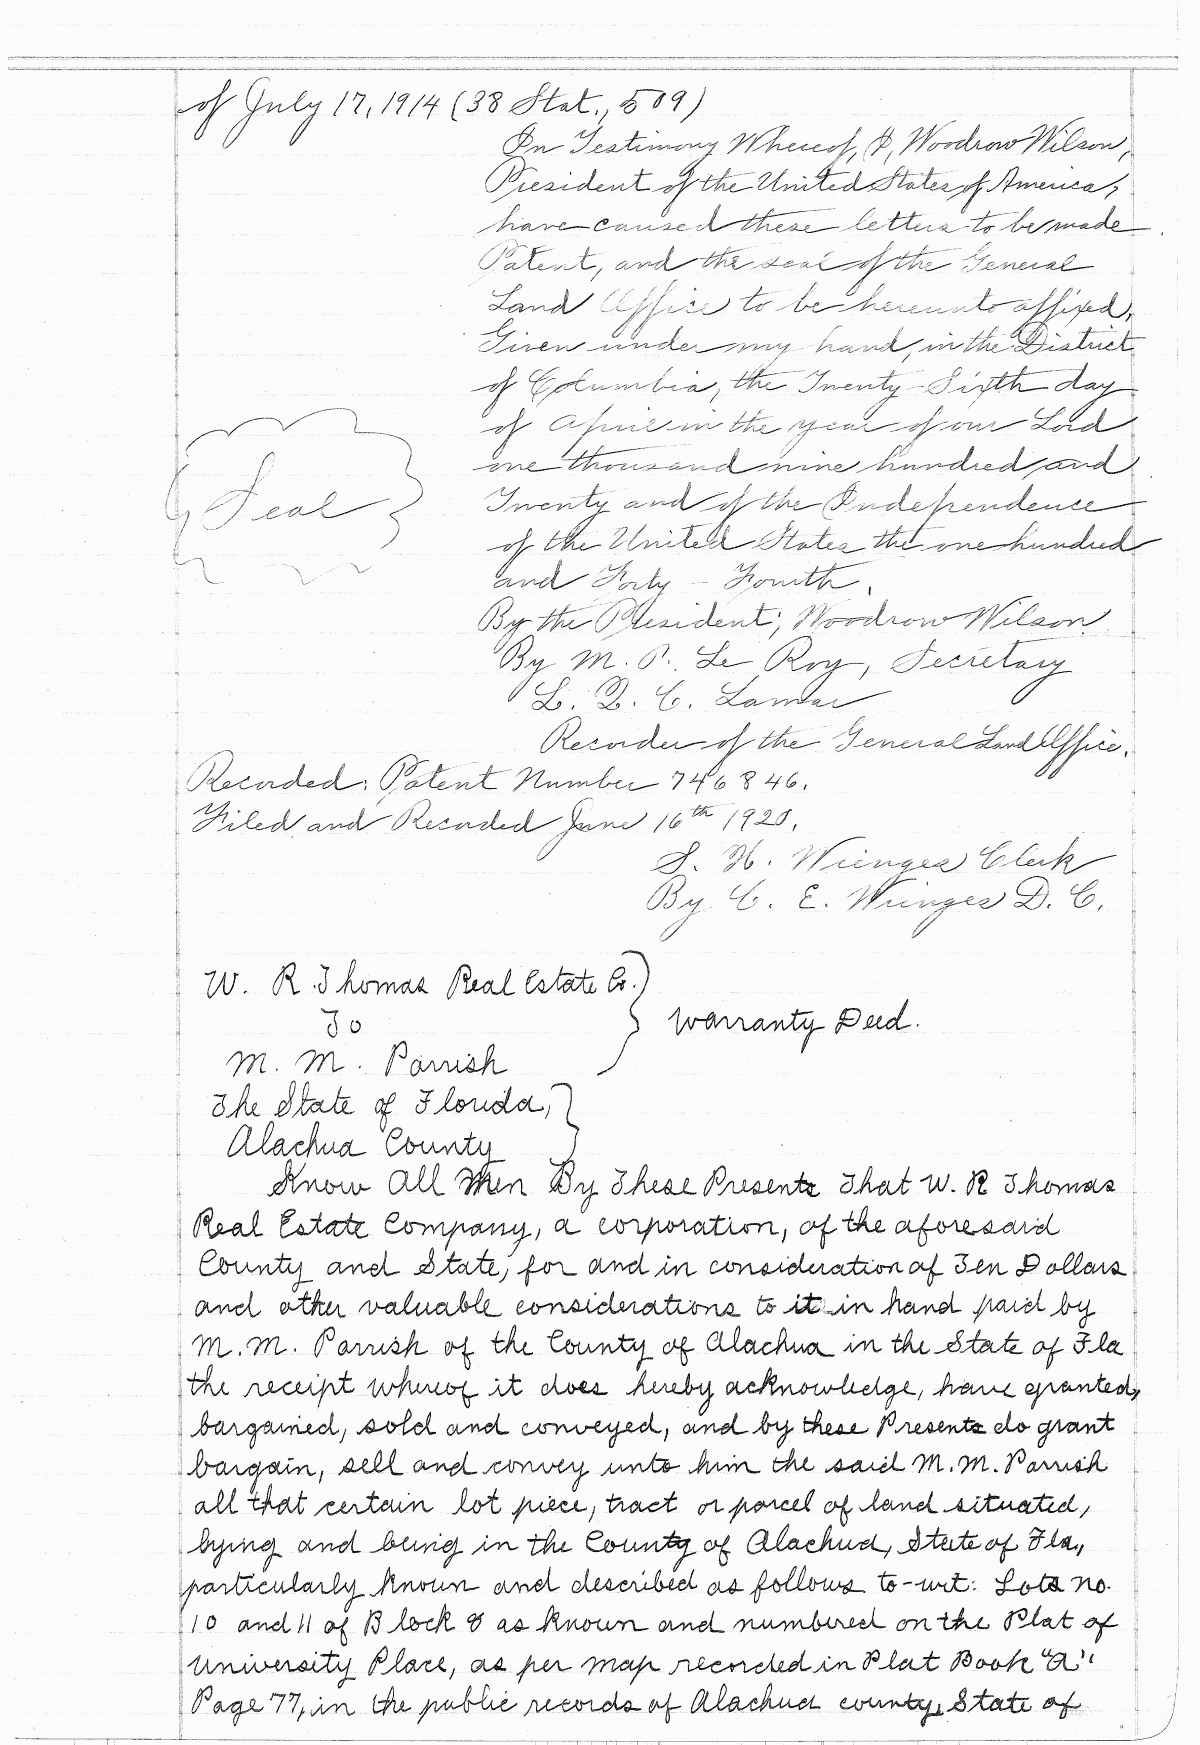 of July 17, 1914 (38 Stat., 509)
In Testimony Whereof, I, Woodrow Wilson,
President of the United States of America,
have caused these letters to be made
Patent, and the seal of the General
Land Office to be hereunto affixed,
Given under my hand, in the District
of Columbia, the Twenty-Sixth day
of April in the year of our Lord
one thousand nine hundred and
Twenty and of the Independence
of the United States the one hundred
and Forty-Fourth.
Seal
By the President; Woodrow Wilson
By M. P. Le Roy, Secretary
L. Q. C. Lamar
Recorder of the General Land Office.
Recorded: Patent Number 746846.
Filed and Recorded June 16th 1920.
S. H. Wienges Clerk
By C. E. Wienges D. C.
W. R. Thomas Real Estate Co.
To
Warranty Deed.
M. M. Parrish
The State of Florida,
Alachua County
Know All Men By These Presents That W. R Thomas
Real Estate Company, a corporation, of the aforesaid
County and State, for and in consideration of Ten Dollars
and other valuable considerations to it in hand paid by
M. M. Parrish of the County of Alachua in the State of Fla
the receipt whereof it does hereby acknowledge, have granted,
bargained, sold and conveyed, and by these Presents do grant
bargain, sell and convey unto him the said M. M. Parrish
all that certain lot piece, tract or parcel of land situated,
lying and being in the County of Alachua, State of Fla.,
particularly known and described as follows to-wit: Lots no.
10 and 11 of Block 8 as known and numbered on the Plat of
University Place, as per map recorded in Plat Book "A"
Page 77, in the public records of Alachua county, State of